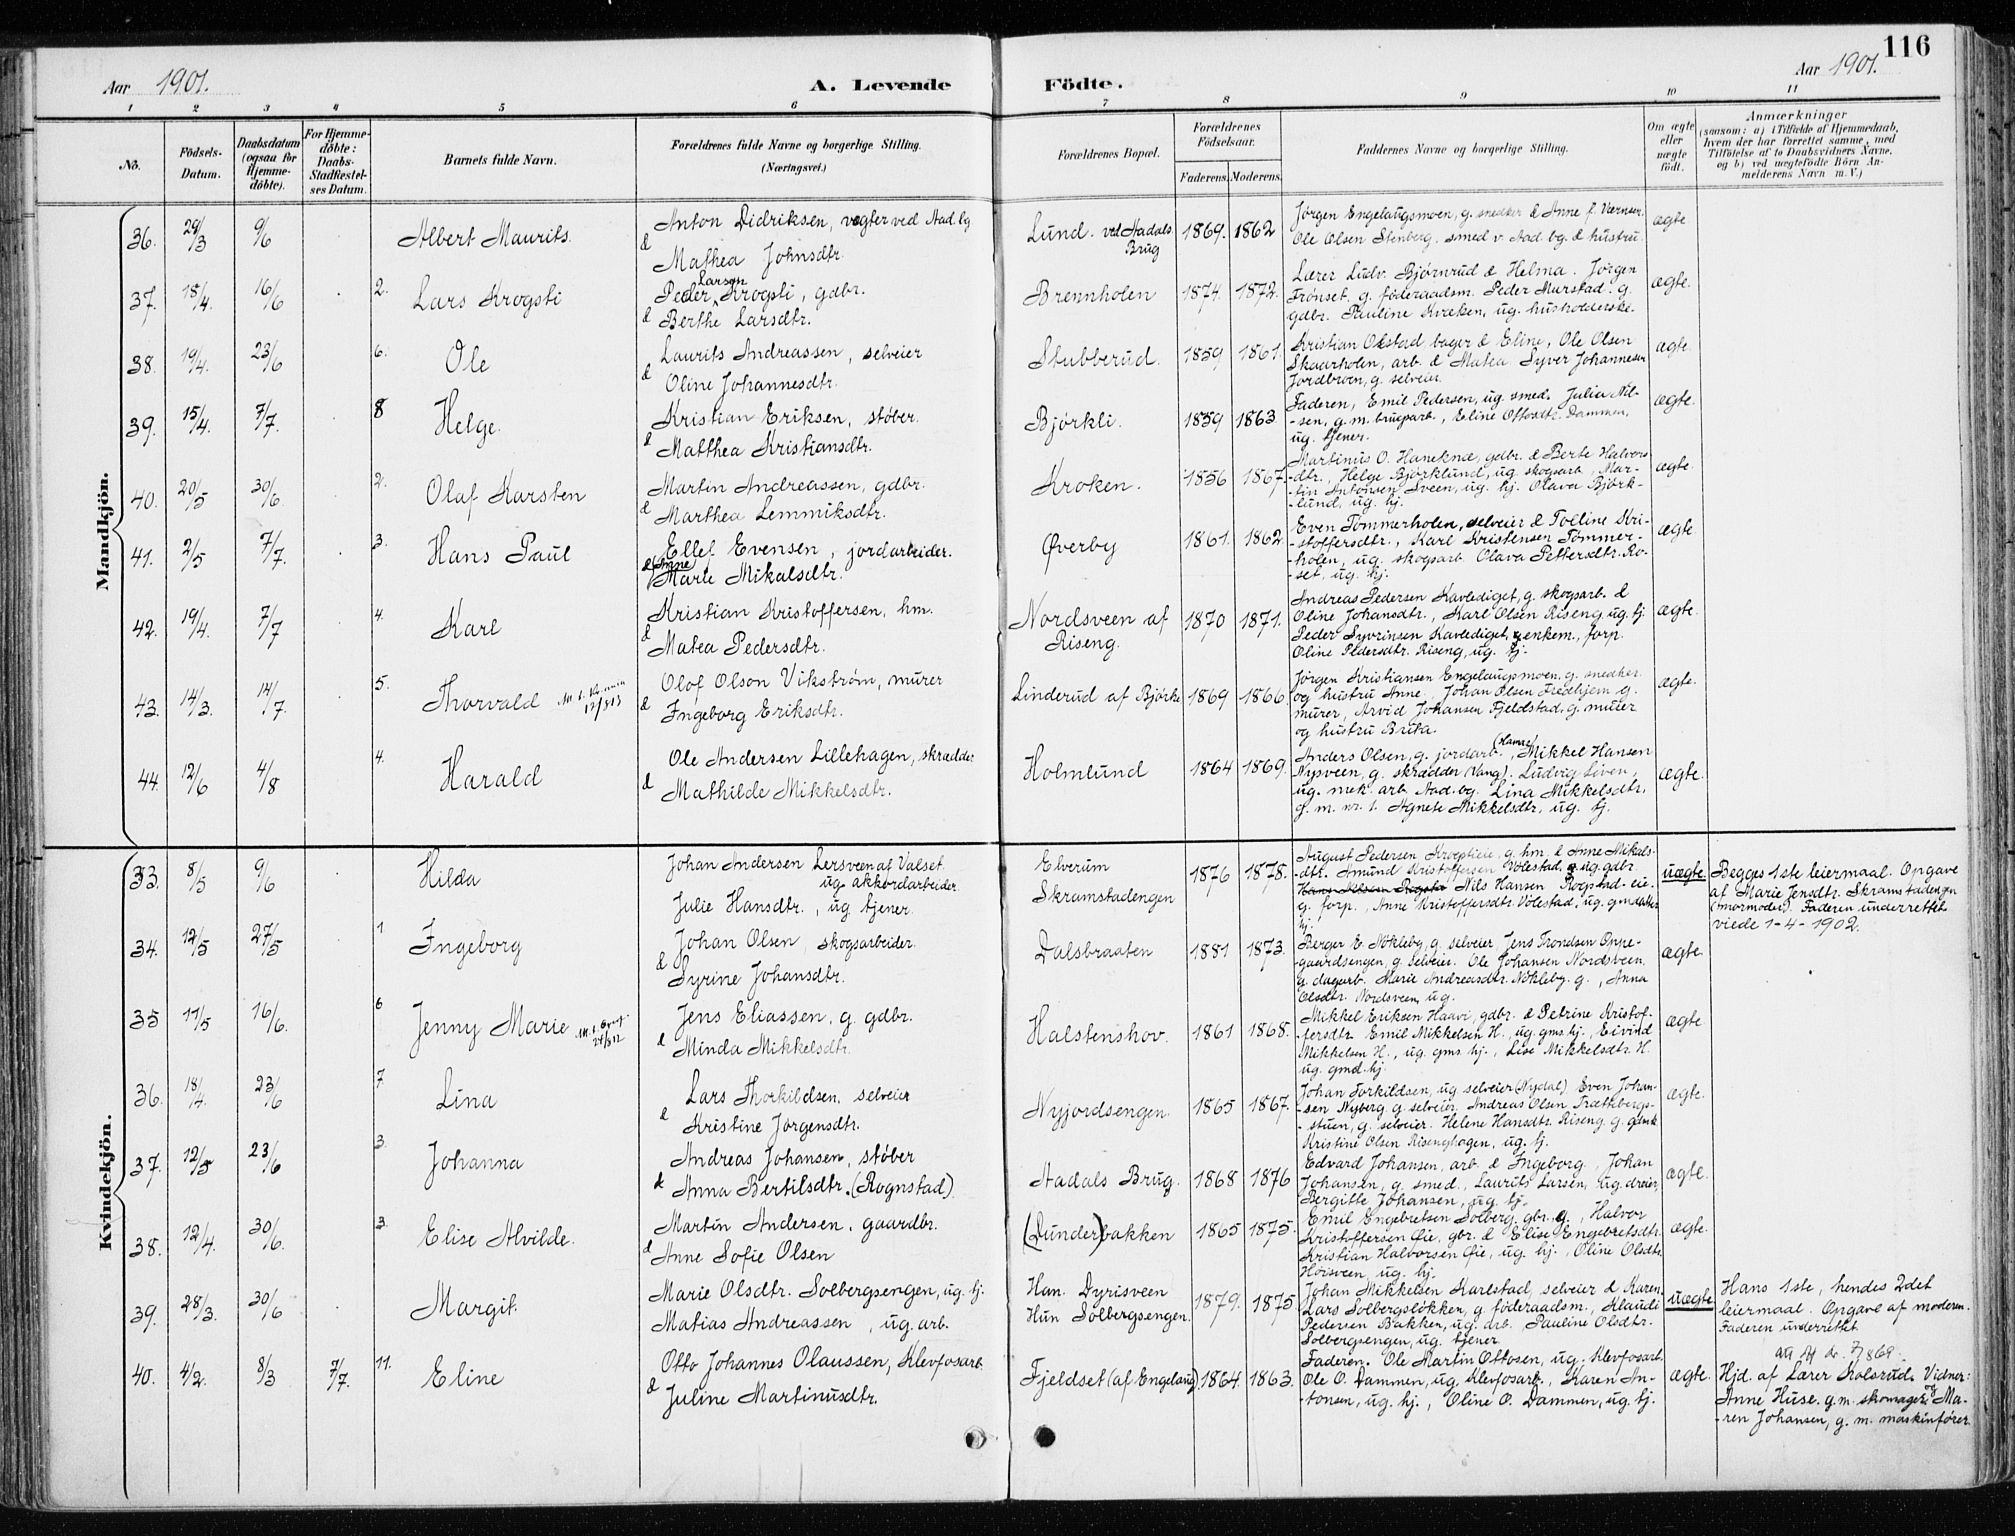 116
Aar 1901. A. Levende Födte. Aar 1901.
1 2 3 4 5 6 7 8 9 10 11
No.
Födsels-Datum.
Daabsdatum (ogsaa for Hjemme-döbte).
For Hjemme-döbte: Daabs-Stadfæstelses Datum.
Barnets fulde Navn.
Forældrenes fulde Navne og borgerlige Stilling. (Næringsvei.)
Forældrenes Bopæl.
Forældrenes Födselsaar.
Faderens. Moderens.
Faddernes Navne og borgerlige Stilling.
Om ægte eller uægte født.
Anmærkninger
(saasom: a) i Tilfælde af Hjemmedaab, hvem der har forrettet samme, med Tilföielse af to Daabsvidners Navne, og b) ved uægtefödte Börn Anmelderens Navn m. V.)
Mandkjön.
36. 29/3 9/6 Albert Maurits.
Anton Didriksen, vægter ved Aad. bg
& Mathea Johnsdtr.
Lund. ved Aadals Brug 1869. 1862
Jörgen Engelaugsmoen, g. snedker & Anne f. Værnser.
Ole Olsen Stenberg. smed v. Aad. bg. & hustru.
ægte
37. 18/4. 16/6 2. Lars Krogsti
Peder Larsen Krogsti, gdbr.
& Berthe Larsdtr.
Brennholen 1874. 1872.
Lærer Ludv. Bjørnrud & Helma. Jörgen
Frönset, g. föderaadsm. Peder Murstad. g.
gdbr. Pauline Kvæken, ug. husholderske.
ægte.
38. 19/4. 23/6 6. Ole
Laurits Andreassen, selveier
& Oline Johannesdtr.
Stubberud. 1859 1861.
Kristian Okstad bager & Eline, Ole Olsen
Skaarholen, arb. & Matea Syver Johannesen
Jordbroen, g. selveier
ægte.
39. 15/4. 7/7. 8 Helge.
Kristian Eriksen, støber.
& Matthea Kristiansdtr.
Bjørkli. 1859 1863
Faderen, Emil Pedersen, ug. smed. Julia Nil-
-sen, g. m. brugsarb., Eline Ottosdtr. Dammen,
ug. tjener.
ægte.
40. 20/5 30/6. 2. Olaf Karsten
Martin Andreassen, gdbr.
& Marthea Lemmiksdtr.
Kroken. 1856 1867.
Martinus O. Haneknæ, gdbr. & Berte Halvors
-dtr., Helge Björklund, ug. skogsarb., Mar-
tin Antonsen Sveen, ug. hj. Olava Björk-
-lund, ug. hj.
ægte.
41. 2/5 7/7. 3. Hans Paul
Ellef Evensen, jordarbeider.
& (Anne) Marte Mikalsdtr.
Øverby 1861. 1862
Even Tömmerholen, selveier & Tolline Kri-
-stoffersdtr., Karl Kristensen Tömmer-
-holen, ug. skogsarb. Olava Pettersdtr. Ro-
-set, ug. hj.
ægte.
42. 19/4. 7/7 4. Karl
Kristian Kristoffersen, hm.
& Matea Pedersdtr.
Nordsveen af Riseng. 1870 1871.
Andreas Pedersen Kavlediget, g. skogsarb. &
Oline Johansdtr., Karl Olsen Riseng, ug. hj.
Peder Syvrinsen Kavlediget, enkem., forp.
Oline Pedersdtr. Riseng, ug. hj.
ægte.
43. 14/3. 14/7. 5. Thorvald 12/8 13
Olof Olson Vikström, murer
& Ingeborg Eriksdtr.
Linderud af Björke 1869 1866
Jörgen Kristiansen Engelaugsmoen, g. snedker
og hustru Anne, Johan Olsen Fredhjem g.
murer, Arvid Johansen Fjeldstad, g. murer
og hustru Brita.
ægte.
44. 12/6 4/8 4. Harald
Ole Andersen Lillehagen, skrædder
& Mathilde Mikkelsdtr.
Holmlund 1864 1869.
Anders Olsen, g. jordarb. (Hamre), Mikkel Hansen
Nysveen, g. skrædder (Vang). Ludvig Liven,
ug. mek. arb. Aad. bg. Lina Mikkelsdtr.
g. m. nr. 1. Agnete Mikkelsdtr., ug. tj.
ægte.
Kvindekjön.
33. 8/5 9/6 Hilda
Johan Andersen Lersveen af Valset
ug. akkordarbeider.
Julie Hansdtr., ug tjener
Elverum
Skramstadengen 1876 1878.
August Pedersen, g. hm. & Anne Mikals-
dtr. Amund Kristoffersen Volestad, ug. gdbr.
Nils Hansen Rogstad-eie.
g. forp., Anne Kristoffersdtr. Volestad, ug. gmdatter
hj.
uægte
Begges 1ste leiermaal. Opgave
af Marie Jensdtr. Skramstadengen
(mormoder). Faderen underrettet
viede 1-4-1902.
34. 12/5 27/5 1 Ingeborg
Johan Olsen, skogsarbeider.
& Syrine Johansdtr.
Dalsbraaten 1881 1873.
Berger E. Nökleby, g. selveier, Jens Trondsen Oppe-
-gaardsengen, g. selveier. Ole Johansen Nordsveen
g. dagarb. Marie Andreasdtr. Nökleby. g., Anna
Olsdtr. Nordsveen, ug.
ægte.
35 17/5 16/6. 6 Jenny Marie
Jens Eliassen, g. gdbr.
& Minda Mikkelsdtr.
Halstenshov. 1861 1868.
Mikkel Eriksen Haavi, gdbr. & Petrine Kristof-
-fersdtr. Emil Mikkelsen H., ug. gms. hj., Eivind
Mikkelsen H., ug. gms. hj., Lise Mikkelsdtr. H.
ug. gmd. hj.
ægte
36. 18/4. 23/6 7. Lina
Lars Thorkildsen. selveier
& Kristine Jörgensdtr.
Nyjordsengen. 1865 1867.
Johan Torkildsen, ug selveier (Nydal) Even Johan-
-sen Nyberg, g. selveier. Andreas Olsen Trætbergs-
-stuen, g. selveier. Helene Hansdtr. Riseng. g.
Kristine Olsen Risenghagen, ug. hj.
ægte.
37. 12/5 23/6 3. Johanna
Andreas Johansen, støber
& Anna Bertilsdtr. (Rognstad)
Aadals Brug. 1868 1876
Edvard Johansen, arb. & Ingeborg. Johan
Johansen, g. smed., Laurits Larsen, ug. dreier,
Bergitte Johansen, ug. tj.
ægte.
38. 12/4. 30/6. 3. Elise Alvilde.
Martin Andersen. gaardbr.
& Anne Sofie Olsen
(Dunder)bakken 1865 1875.
Emil Engebretsen Solberg, gbr. g., Halvor
Kristoffersen Øie, gbr. & Elise Engebretsdtr.
Kristian Halvorsen Øie, ug. hj., Oline Olsdtr.
Hoisveen, ug. hj.
ægte.
39. 28/3. 30/6 Margit.
Marie Olsdtr. Solbergsengen, ug. tj.
Matias Andreassen, ug. arb.
Han. Dyrisveen
Hun Solbergsengen. 1879. 1875
Johan Mikkelsen Karlstad, selveier & Karen
Lars Solbergslökken, g. föderaadsm., Klaudi
Pedersen Bakken, ug. arb. Pauline Olsdtr.
Solbergsengen, ug. tjener
uægte
Hans 1ste, hendes 2det
leiermaal. Opgave af moderen.
Faderen underrettet
40. 4/2. 8/3 7/7. 11. Eline
Otto Johannes Olaussen, Klevfosarb.
& Juline Martinusdtr.
Fjeldset (af Engelaug) 1864. 1863.
Faderen. Ole Martin Ottosen, ug. Klevfosarb.
Ole O. Dammen, ug, Klevfosarb., Karen An-
-tonsen, ug. hj., Oline O. Dammen, ug. tj.
ægte.
Hjd. af Lærer Kolsrud. Vidner:
Anne Huse. g. m. skomager og Ma-
-ren Johansen, g. m. maskinfører.